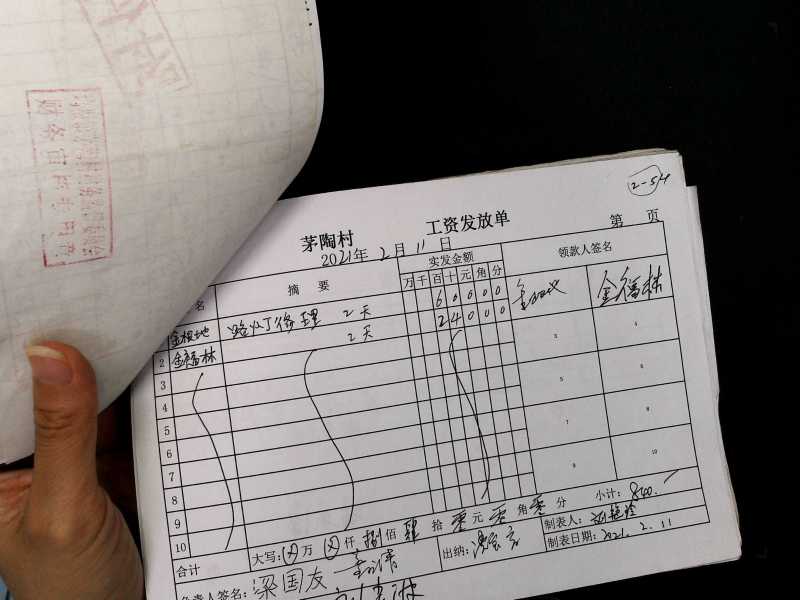 2-54
茅陶村 工资发放单 第 页
2021年 2月 11日
名 摘 要 实发金额 领款人签名
万 千 百 十 元 角 分
金根地 路灯修理 2天 6 0 0 0 0
2 金福林 2天 2 4 0 0 0 金福林
3
4
5
6
7
8
9
10
3 4
5 6
7 8
9 10
合计 大写: 万 仟 捌佰 肆拾 零元 零角 零分 小计: 840.
负责人签名: 梁国友 出纳: 制表人:
制表日期: 2021.2.11
财务